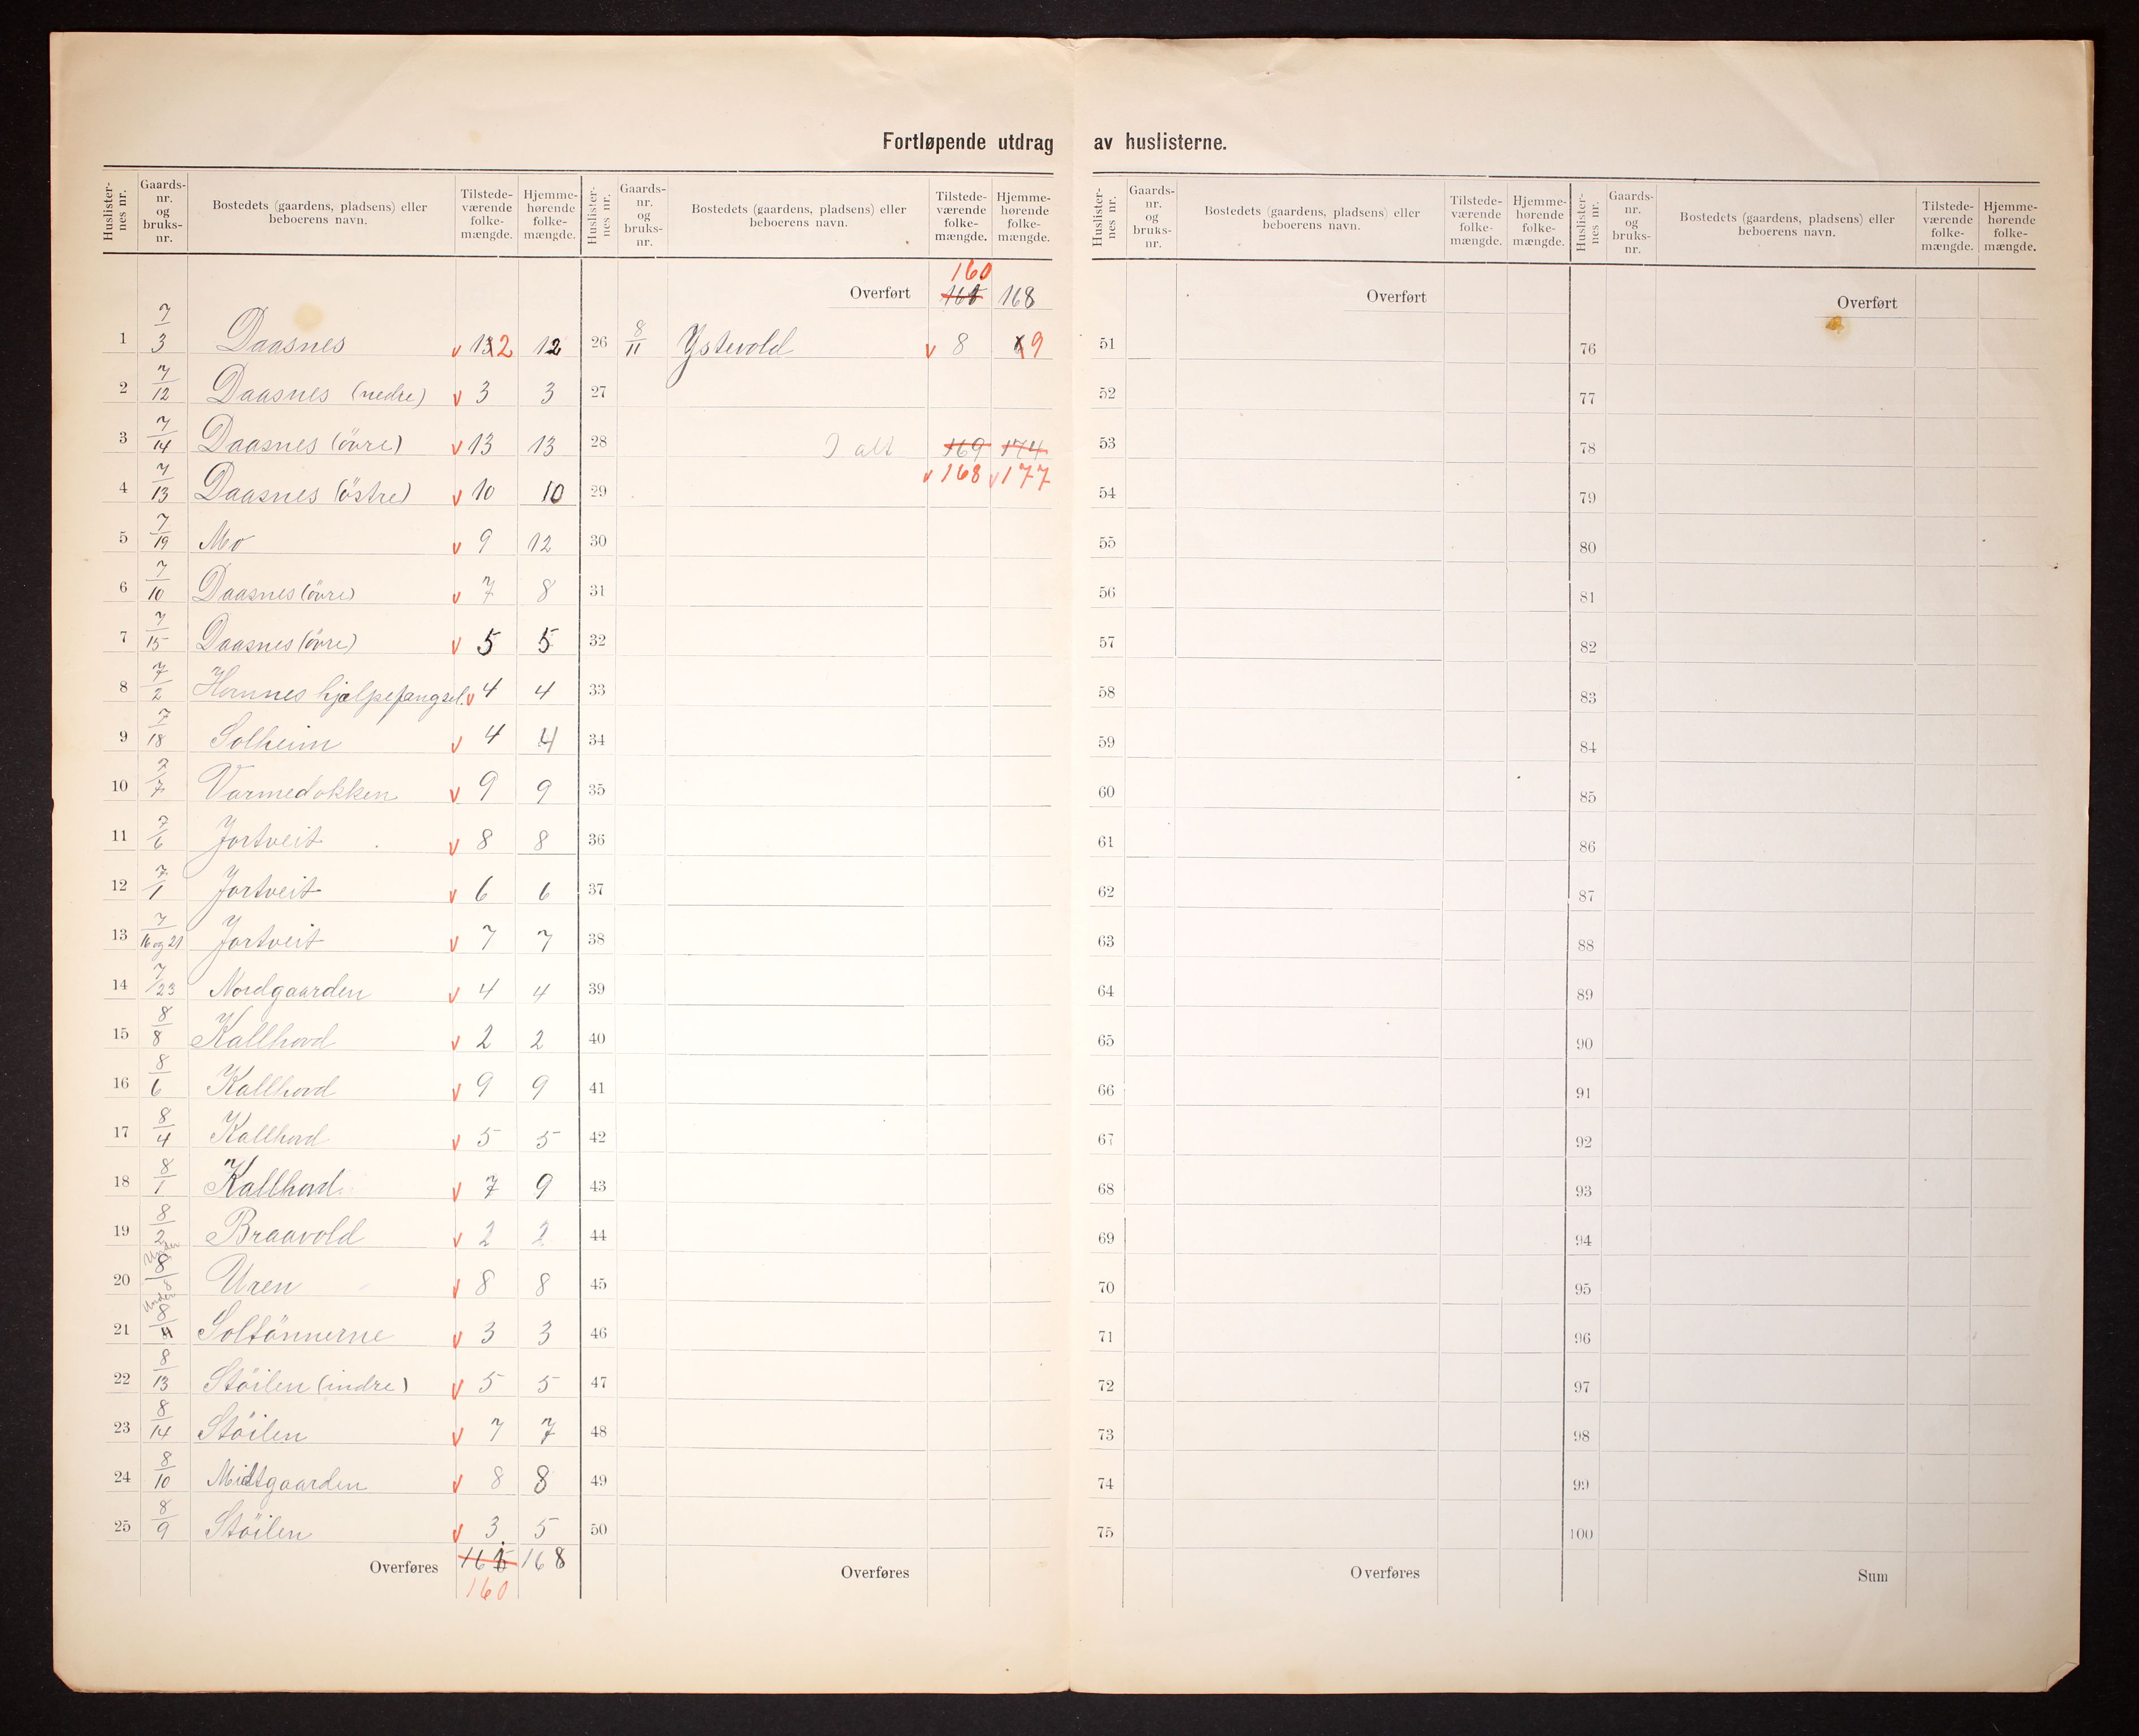 Fortløpende utdrag av huslisterne.
Huslister-nes nr. | Gaards-nr. og bruks-nr. | Bostedets (gaardens, pladsens) eller beboerens navn. | Tilstede-værende folke-mængde. | Hjemme-hørende folke-mængde.
1 7/3 Daasnes v 132 12
2 7/12 Daasnes (nedre) v 3 3
3 7/14 Daasnes (övre) v 13 13
4 7/13 Daasnes (östre) v 10 10
5 7/19 Mo v 9 12
6 7/10 Daasnes (övre) v 7 8
7 7/15 Daasnes (övre) v 5 5
8 7/2 Homnes hjælpefængsel. v 4 4
9 7/18 Solheim v 4 4
10 7/7 Varmedokken v 9 9
11 7/6 Jortveit v 8 8
12 7/1 Jortveit v 6 6
13 7/16 og 21 Jortveit v 7 7
14 7/23 Nordgaarden v 4 4
15 8/8 Kallhovd v 2 2
16 8/6 Kallhovd v 9 9
17 8/4 Kallhovd v 5 5
18 8/1 Kallhovd v 7 9
19 8/2 Braavold v 2 2
20 Under 8/8 Uren v 8 8
21 Under 8/11 Soltönnerne v 3 3
22 8/13 Stöilen (indre) v 5 5
23 8/14 Stöilen v 7 7
24 8/10 Midtgaarden v 8 8
25 8/9 Stöilen v 3 5
Overføres 161 168
160
Huslister-nes nr. | Gaards-nr. og bruks-nr. | Bostedets (gaardens, pladsens) eller beboerens navn. | Tilstede-værende folke-mængde. | Hjemme-hørende folke-mængde.
160
Overført 161 168
26 8/11 Ystevold v 8 9
27
28 I alt 169 174
v 168 v 177
29
30
31
32
33
34
35
36
37
38
39
40
41
42
43
44
45
46
47
48
49
50
Overføres
Huslister-nes nr. | Gaards-nr. og bruks-nr. | Bostedets (gaardens, pladsens) eller beboerens navn. | Tilstede-værende folke-mængde. | Hjemme-hørende folke-mængde.
Overført
51
52
53
54
55
56
57
58
59
60
61
62
63
64
65
66
67
68
69
70
71
72
73
74
75
Overføres
Huslister-nes nr. | Gaards-nr. og bruks-nr. | Bostedets (gaardens, pladsens) eller beboerens navn. | Tilstede-værende folke-mængde. | Hjemme-hørende folke-mængde.
Overført
76
77
78
79
80
81
82
83
84
85
86
87
88
89
90
91
92
93
94
95
96
97
98
99
100
Sum